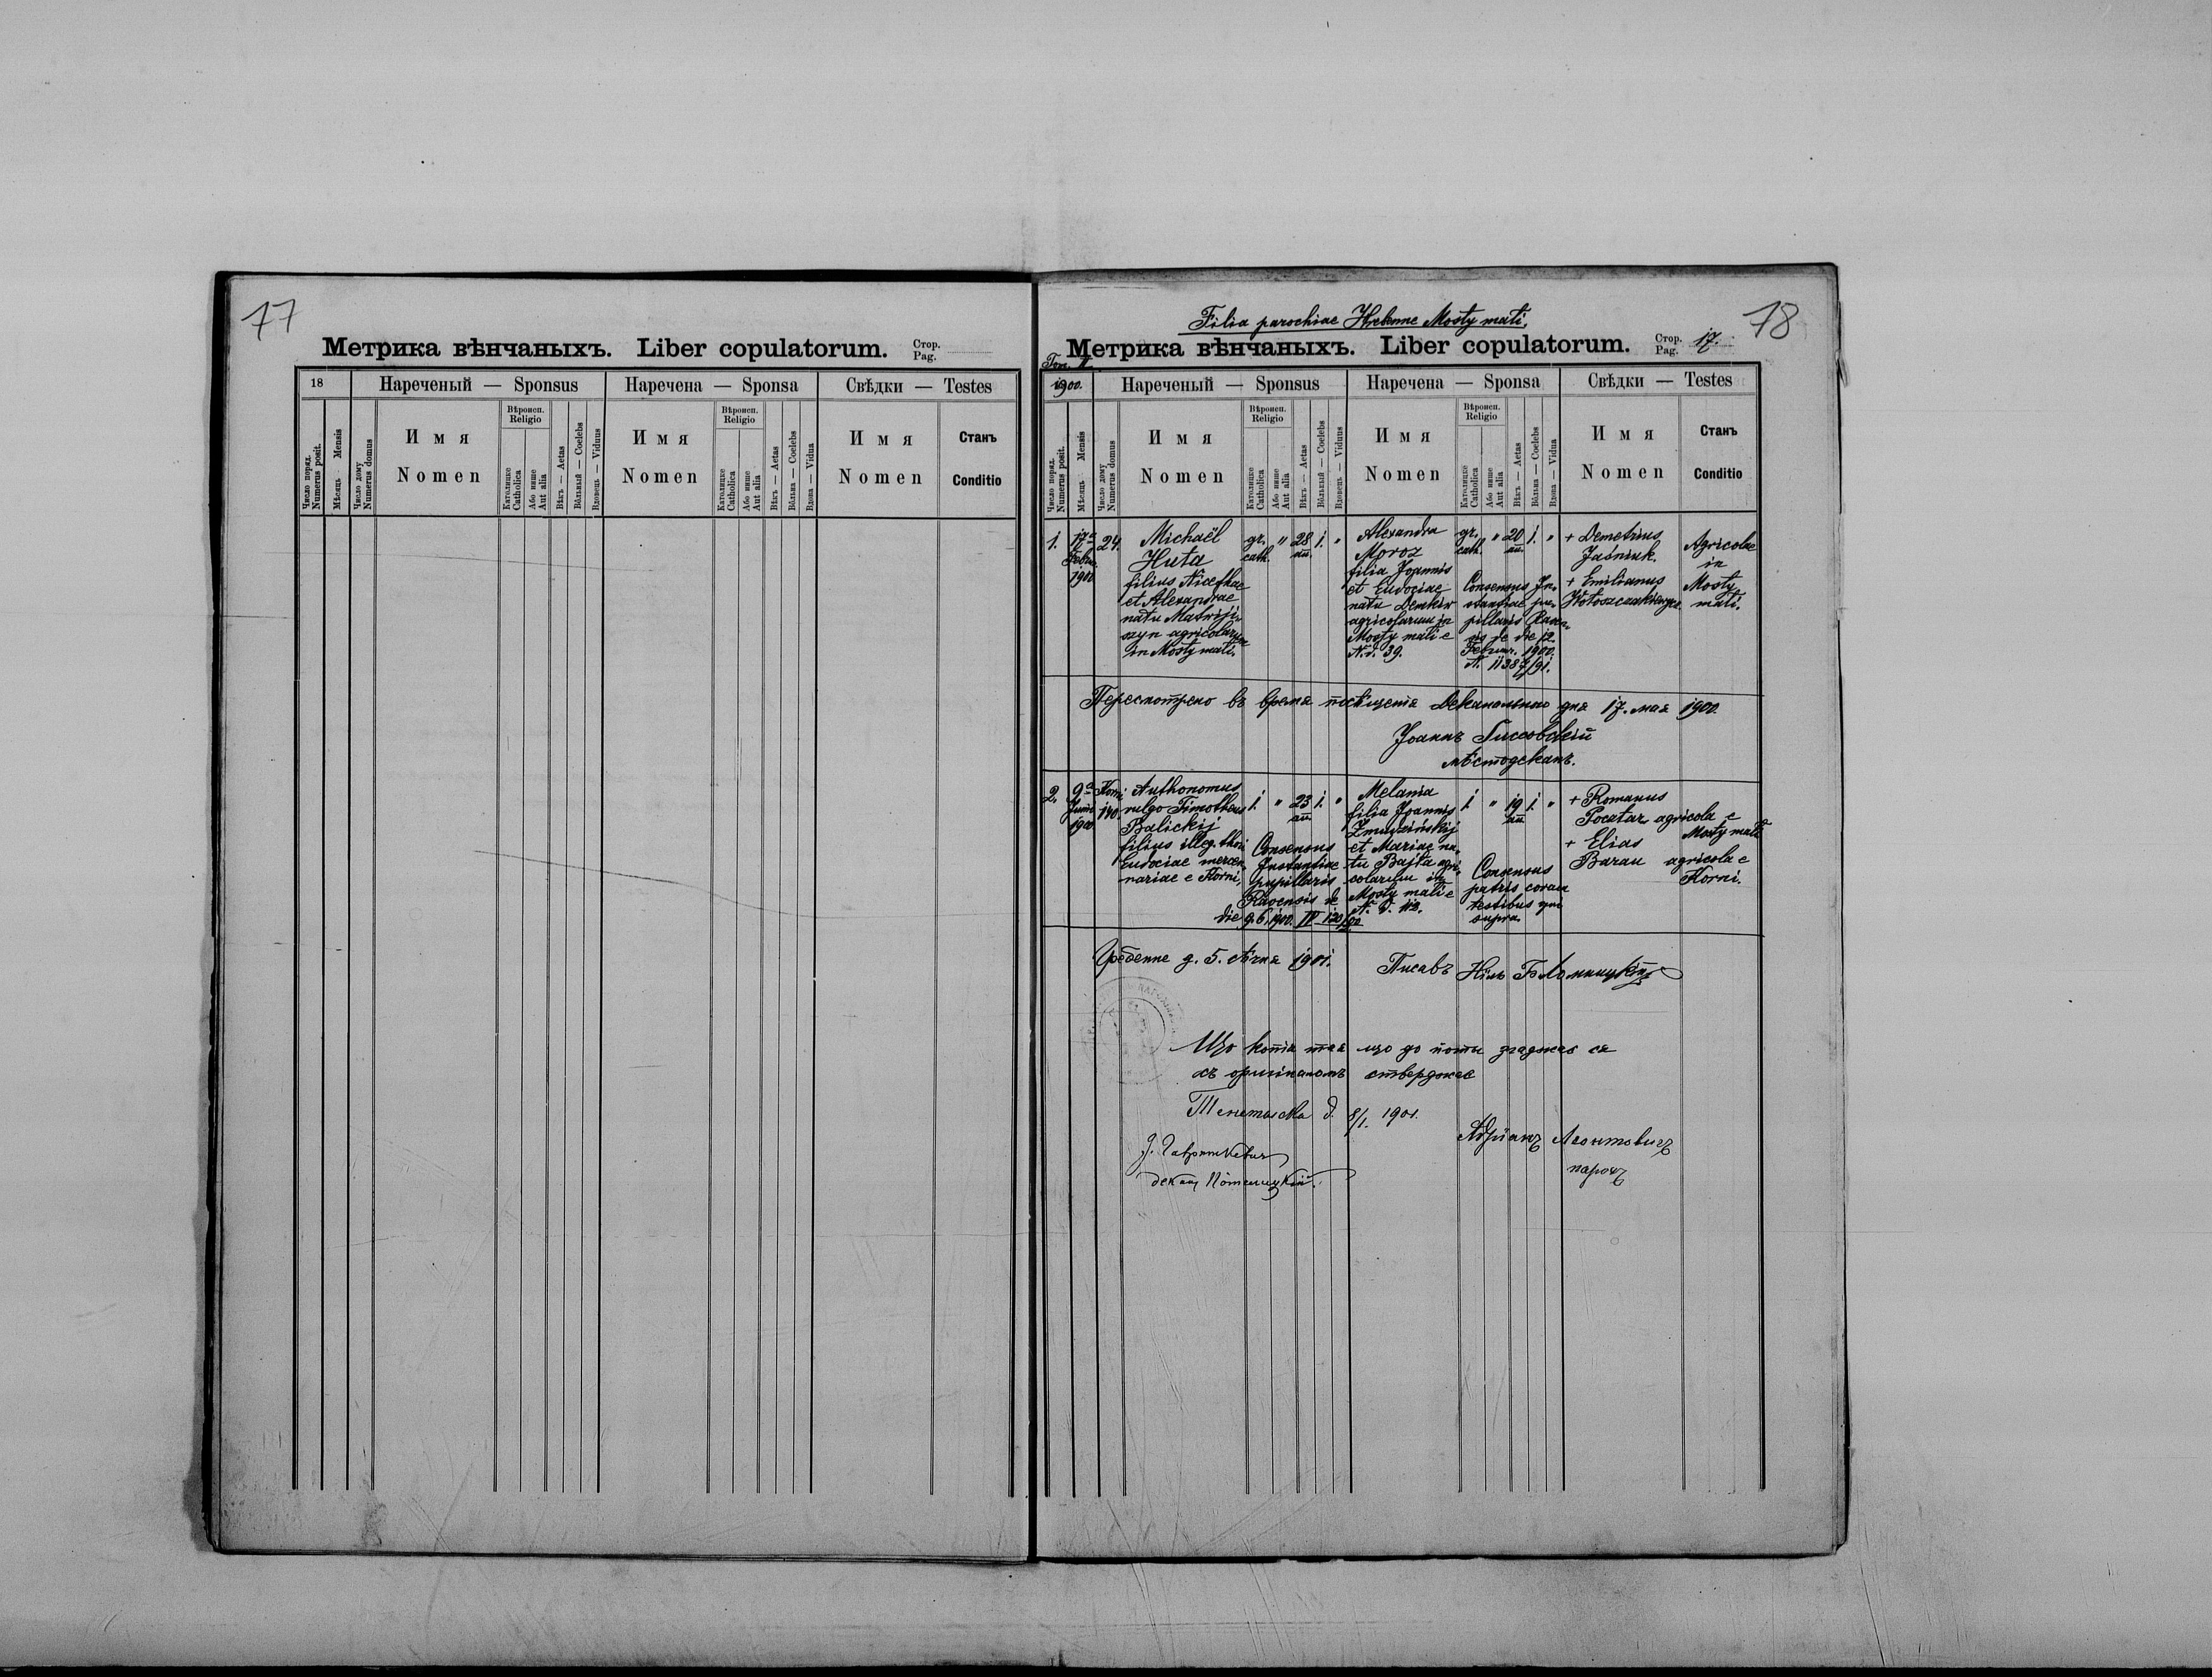 77
Метрика вѣнчаныхъ. Liber copulatorum. Стор. Pag.
18
Нареченый — Sponsus
Наречена — Sponsa
Свѣдки — Testes
Число поряд. Numerus posit.
Мѣсяць Mensis
Число дому Numerus domus
Имя
Nomen
Вѣроисп. Religio
Католицке Catholica
Або инше Aut alia
Вѣкъ — Aetas
Вôльный — Coelebs
Вдовець — Viduus
Имя
Nomen
Вѣроисп. Religio
Католицке Catholica
Або инше Aut alia
Вѣкъ — Aetas
Вôльна — Coelebs
Вдова — Vidua
Имя
Nomen
Станъ
Conditio
78
Filia parochiae Hrebenne Mosty małi.
Метрика вѣнчаныхъ. Liber copulatorum. Стор. Pag. 17.
Tom. II.
1900.
Нареченый — Sponsus
Наречена — Sponsa
Свѣдки — Testes
Число поряд. Numerus posit.
Мѣсяць Mensis
Число дому Numerus domus
Имя
Nomen
Вѣроисп. Religio
Католицке Catholica
Або инше Aut alia
Вѣкъ — Aetas
Вôльный — Coelebs
Вдовець — Viduus
Имя
Nomen
Вѣроисп. Religio
Католицке Catholica
Або инше Aut alia
Вѣкъ — Aetas
Вôльна — Coelebs
Вдова — Vidua
Имя
Nomen
Станъ
Conditio
1.
17a
Febru.
1900
24.
Michaël
Huta
filius Nicethae
et Alexandrae
natu Matwij-
szyn agricolarum
in Mosty małi.
gr. cath.
"
28 an.
1.
"
Alexandra
Moroz
filia Joannis
et Eudociae
natu Demkiw
agricolarum in
Mosty małi e
N. d. 39.
gr. cath.
"
20 an.
1.
"
Consensus In-
stantiae pu-
pillaris Raven-
sis de die 12.
Februar. 1900.
N. 11387/91.
+ Demetrius
Jaśniuk.
+ Emilianus
Agricolae
in
Mosty
małi.
Пересмотрено въ время посѣщенія деканального дня 17. мая 1900.
Іоаннъ
мѣстодеканъ.
2.
9a
Junii
1900
Korni
140.
Authonomus
vulgo Timotheus
Balickij
filius illeg. thori
Eudociae merce-
nariae e Korni,
1.
"
23 an.
1.
"
Consensus
Instantiae
pupillaris
Ravensis de
die 9.6.1900. IV 120/00
Melania
filia Joannis
Żmudzińskij
et Mariae na-
tu Bajta agri-
colarum in
Mosty małi e
N. d. 112.
1.
"
19 an.
1.
"
Consensus
patris coram
testibus qui
supra.
+ Romanus
Pocatar agricola e
Mosty małi
+ Elias
Baran agricola e
Korni.
Гребенне д. 5. Сѣчня 1901.
Писавъ Нілъ
Що копія тая що до йоты згаджає ся
съ оригиналомъ стверджає
д. 8/1. 1901.
Адріанъ Леонтовичъ
парохъ